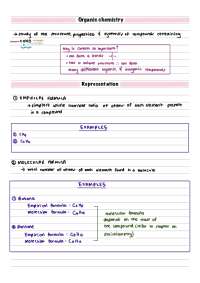 Organic chemistry
→ study of the structure, properties & synthesis of compounds containing
carbon
Why is carbon so important?
• can form 4 bonds
• has a valence
many different organic & inorganic compounds
Representation
① Empirical formula
→ simplest whole number ratio of atoms of each element present
in a compound
EXAMPLES
①
②
② Molecular formula
→ total number of atoms of each element found in a molecule
EXAMPLES
①
Empirical formula -
Molecular formula -
molecular formula
depends on the mass of
② Benzene
the compound (refer to chapter on
Empirical formula -
stoichiometry)
Molecular formula -